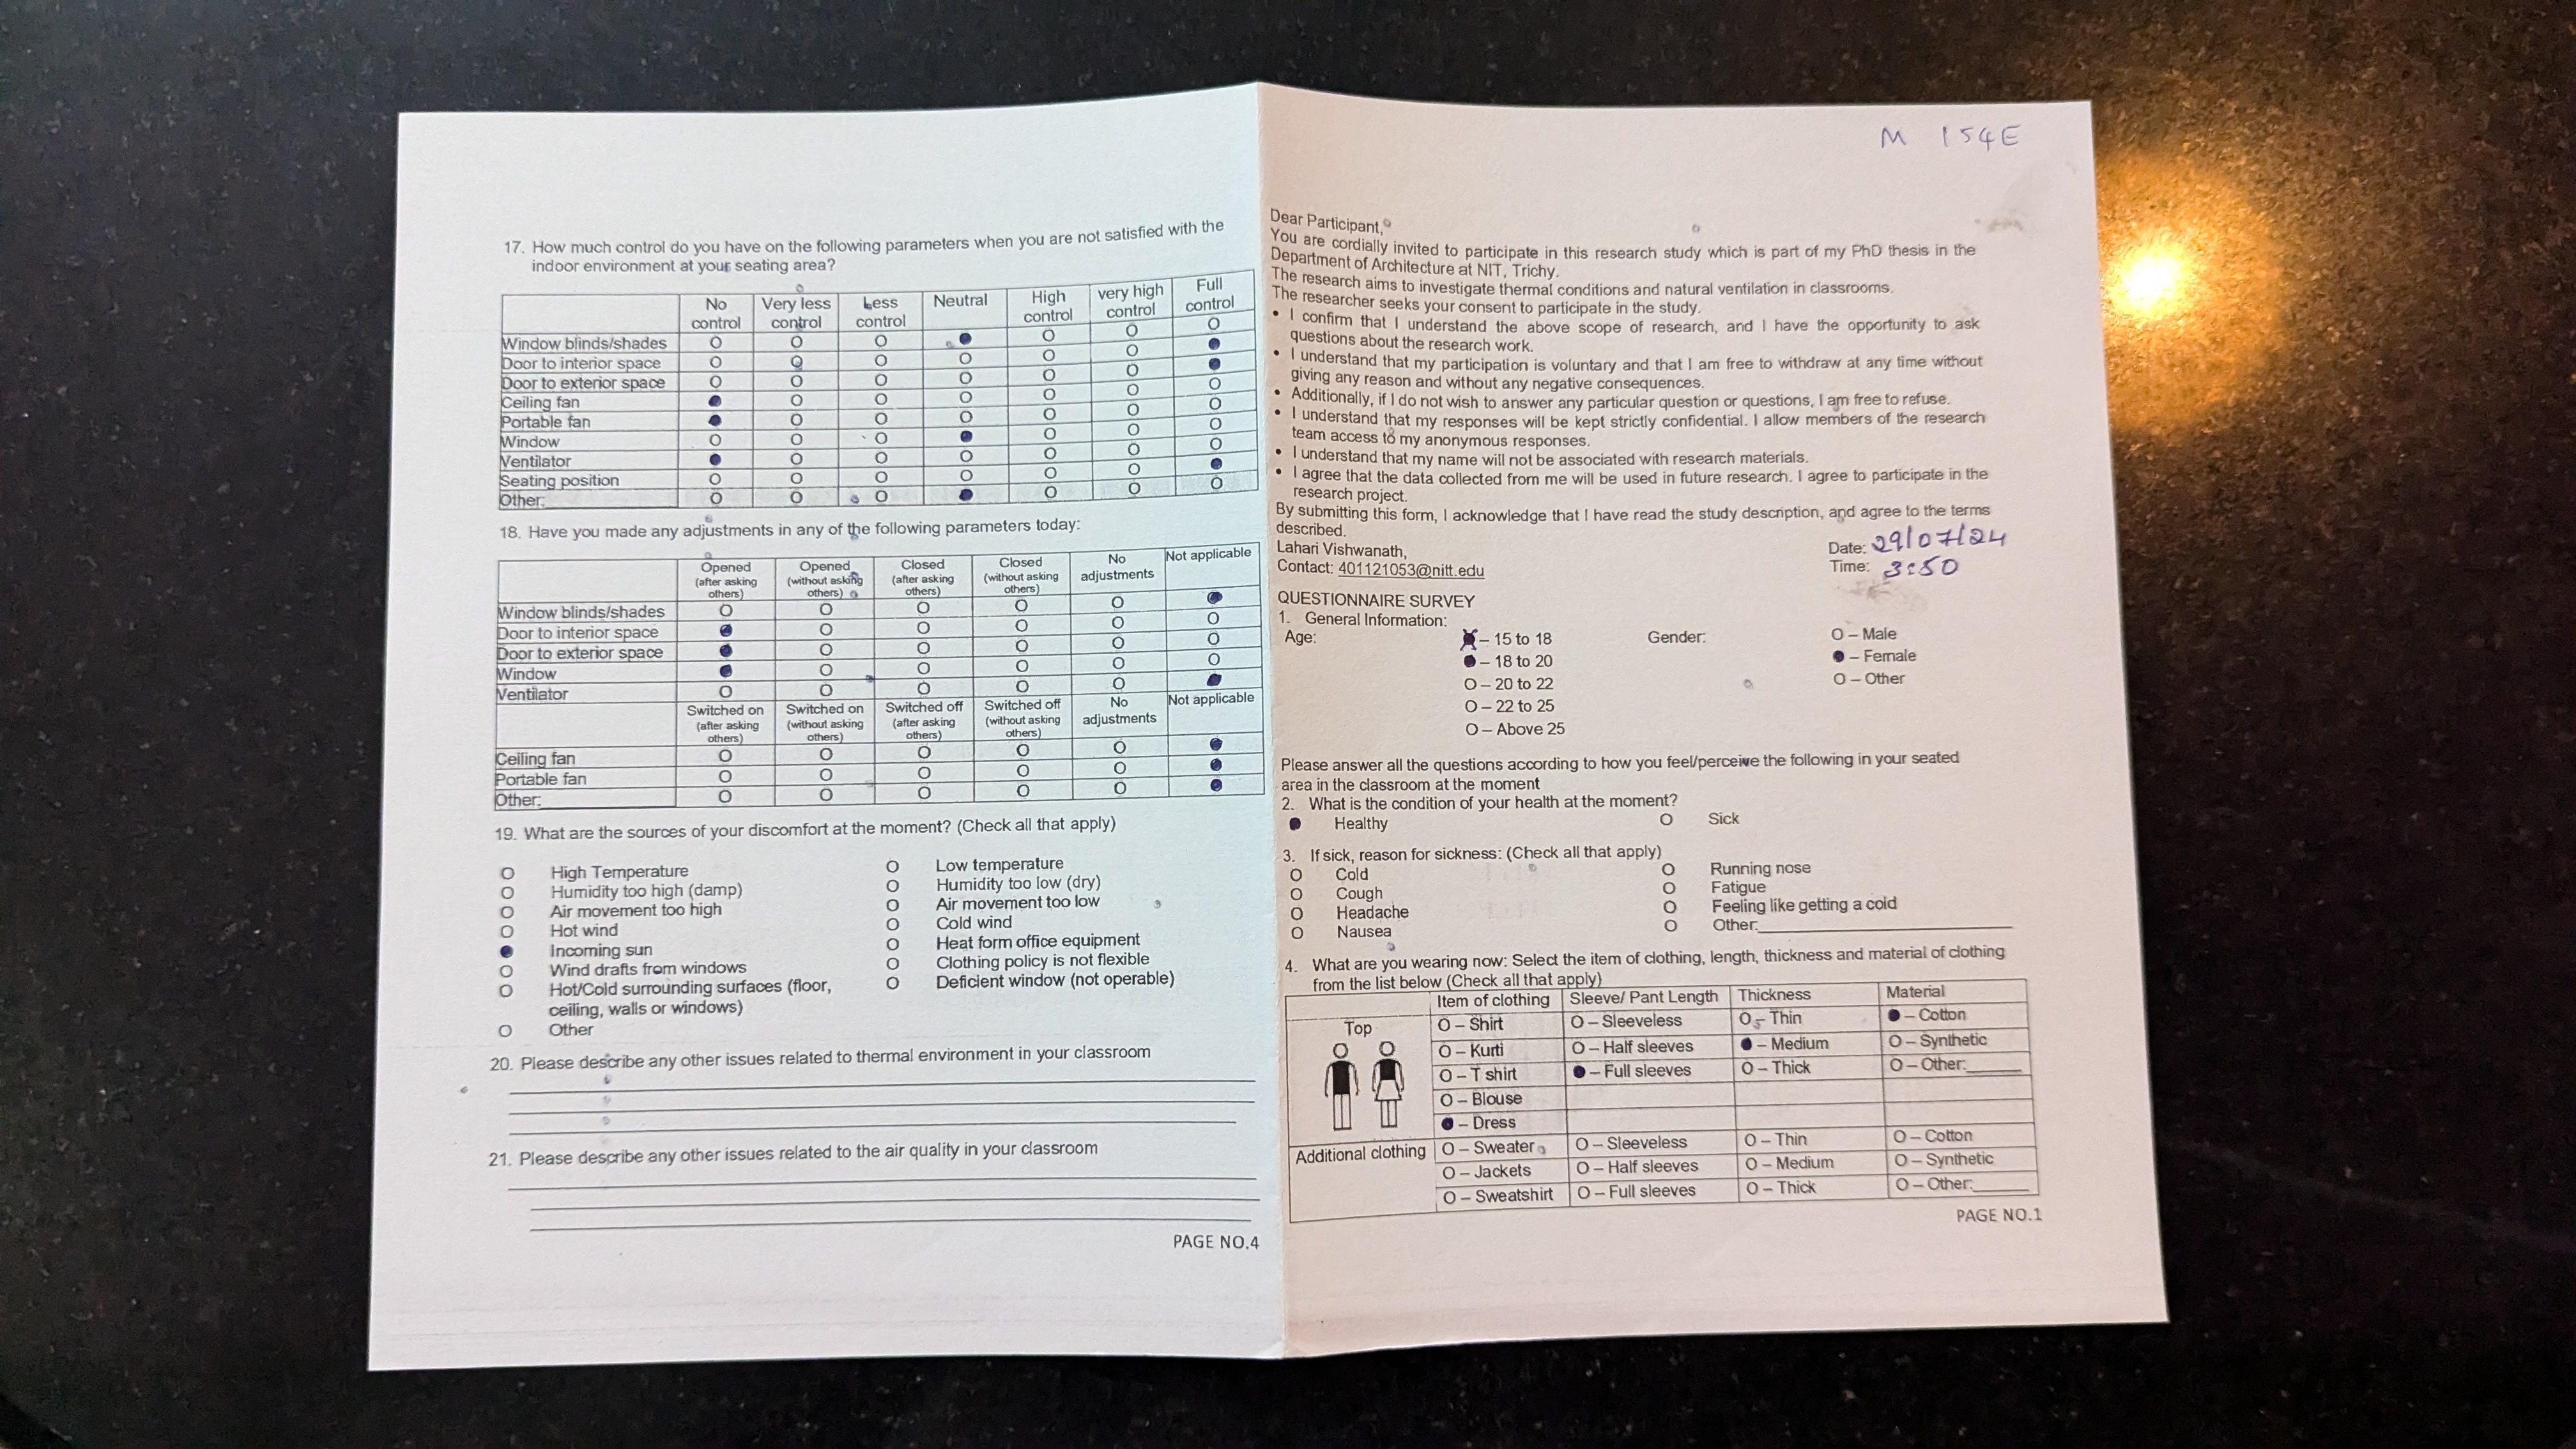 17. How much control do you have on the following parameters when you are not satisfied with the
indoor environment at your seating area?
No control Very less control Less control Neutral High control very high control Full control
Window blinds/shades O O O ● O O O
Door to interior space O O O O O O ●
Door to exterior space O O O O O O ●
Ceiling fan ● O O O O O O
Portable fan ● O O O O O O
Window O O O ● O O O
Ventilator ● O O O O O O
Seating position O O O O O O ●
Other: O O O ● O O O
18. Have you made any adjustments in any of the following parameters today:
Opened (after asking others) Opened (without asking others) Closed (after asking others) Closed (without asking others) No adjustments Not applicable
Window blinds/shades O O O O O ●
Door to interior space ● O O O O O
Door to exterior space ● O O O O O
Window ● O O O O O
Ventilator O O O O O ●
Switched on (after asking others) Switched on (without asking others) Switched off (after asking others) Switched off (without asking others) No adjustments Not applicable
Ceiling fan O O O O O ●
Portable fan O O O O O ●
Other: O O O O O ●
19. What are the sources of your discomfort at the moment? (Check all that apply)
O High Temperature O Low temperature
O Humidity too high (damp) O Humidity too low (dry)
O Air movement too high O Air movement too low
O Hot wind O Cold wind
● Incoming sun O Heat form office equipment
O Wind drafts from windows O Clothing policy is not flexible
O Hot/Cold surrounding surfaces (floor, O Deficient window (not operable)
ceiling, walls or windows)
O Other
20. Please describe any other issues related to thermal environment in your classroom
21. Please describe any other issues related to the air quality in your classroom
PAGE NO.4
M 154E
Dear Participant,
You are cordially invited to participate in this research study which is part of my PhD thesis in the
Department of Architecture at NIT, Trichy.
The research aims to investigate thermal conditions and natural ventilation in classrooms.
The researcher seeks your consent to participate in the study.
• I confirm that I understand the above scope of research, and I have the opportunity to ask
questions about the research work.
• I understand that my participation is voluntary and that I am free to withdraw at any time without
giving any reason and without any negative consequences.
• Additionally, if I do not wish to answer any particular question or questions, I am free to refuse.
• I understand that my responses will be kept strictly confidential. I allow members of the research
team access to my anonymous responses.
• I understand that my name will not be associated with research materials.
• I agree that the data collected from me will be used in future research. I agree to participate in the
research project.
By submitting this form, I acknowledge that I have read the study description, and agree to the terms
described.
Lahari Vishwanath, Date: 29/07/24
Contact: 401121053@nitt.edu Time: 3:50
QUESTIONNAIRE SURVEY
1. General Information:
Age: – 15 to 18 Gender: O – Male
● – 18 to 20 ● – Female
O – 20 to 22 O – Other
O – 22 to 25
O – Above 25
Please answer all the questions according to how you feel/perceive the following in your seated
area in the classroom at the moment
2. What is the condition of your health at the moment?
● Healthy O Sick
3. If sick, reason for sickness: (Check all that apply)
O Cold O Running nose
O Cough O Fatigue
O Headache O Feeling like getting a cold
O Nausea O Other:
4. What are you wearing now: Select the item of clothing, length, thickness and material of clothing
from the list below (Check all that apply)
Item of clothing Sleeve/ Pant Length Thickness Material
Top O – Shirt O – Sleeveless O – Thin ● – Cotton
O – Kurti O – Half sleeves ● – Medium O – Synthetic
O – T shirt ● – Full sleeves O – Thick O – Other:
O – Blouse
● – Dress
Additional clothing O – Sweater O – Sleeveless O – Thin O – Cotton
O – Jackets O – Half sleeves O – Medium O – Synthetic
O – Sweatshirt O – Full sleeves O – Thick O – Other:
PAGE NO.1